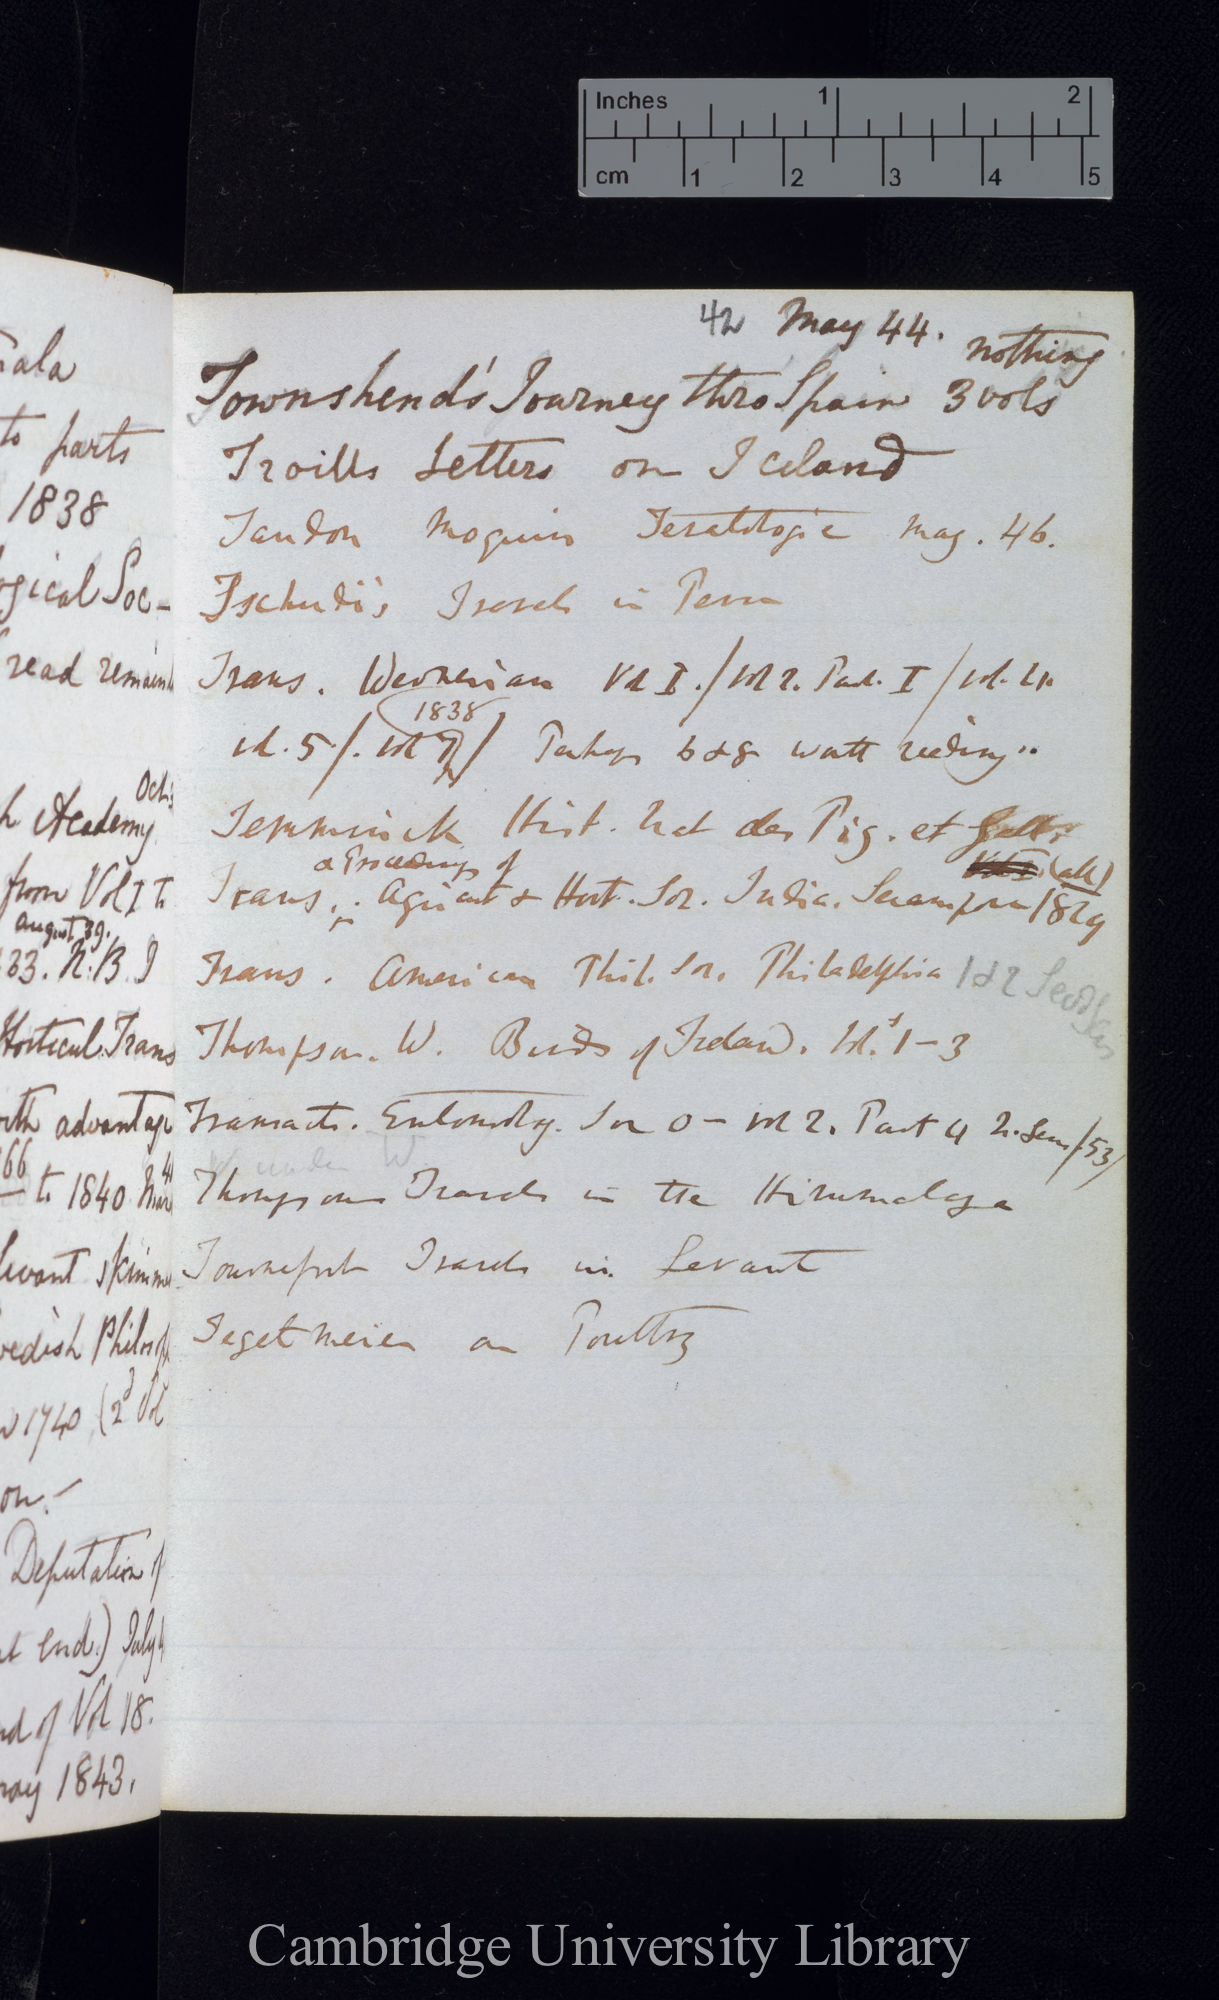 Inches 1 2
cm 1 2 3 4 5
ala
to parts
1838
ogical Soc-
read remains
Octr
h Academy
from Vol I to
August 39.
133. N.B. I
Horticul. Trans
with advantage
66
to 1840
skimmed
wedish Philosoph
1740 (2d Vol
on.-
Deputation of
at end.) July
nd of Vol 18.
may 1843.
42 May 44.
nothing
Townshend's Journey thro Spain 3 vols
Troills Letters on Iceland
Tandon Moquin Teratologie May. 46.
Tschudi's Travels in Peru
Trans. Wernerian Vol I./Vol 2. Part. I/Vol. 4.
1838
vol. 5/. vol 7/ Perhaps 6 & 8 worth reading..
Temminick Hist. Nat des Pig. et Gall:
& Proceedings of
Vol I (all)
Trans. Agricult & Hort. Soc. India. Serampore 1829
Trans. American Phil. Soc. Philadelphia 1 & 2
Thompson. W. Birds of Ireland. Vols. 1-3
Transacts. Entomolog. Soc 0- vol 2. Part 4 N. Series/53/
under W.
Thompsons Travels in the Himmalaya
Tournefort Travels in Levant
Tegetmeier on Poultry
Cambridge University Library